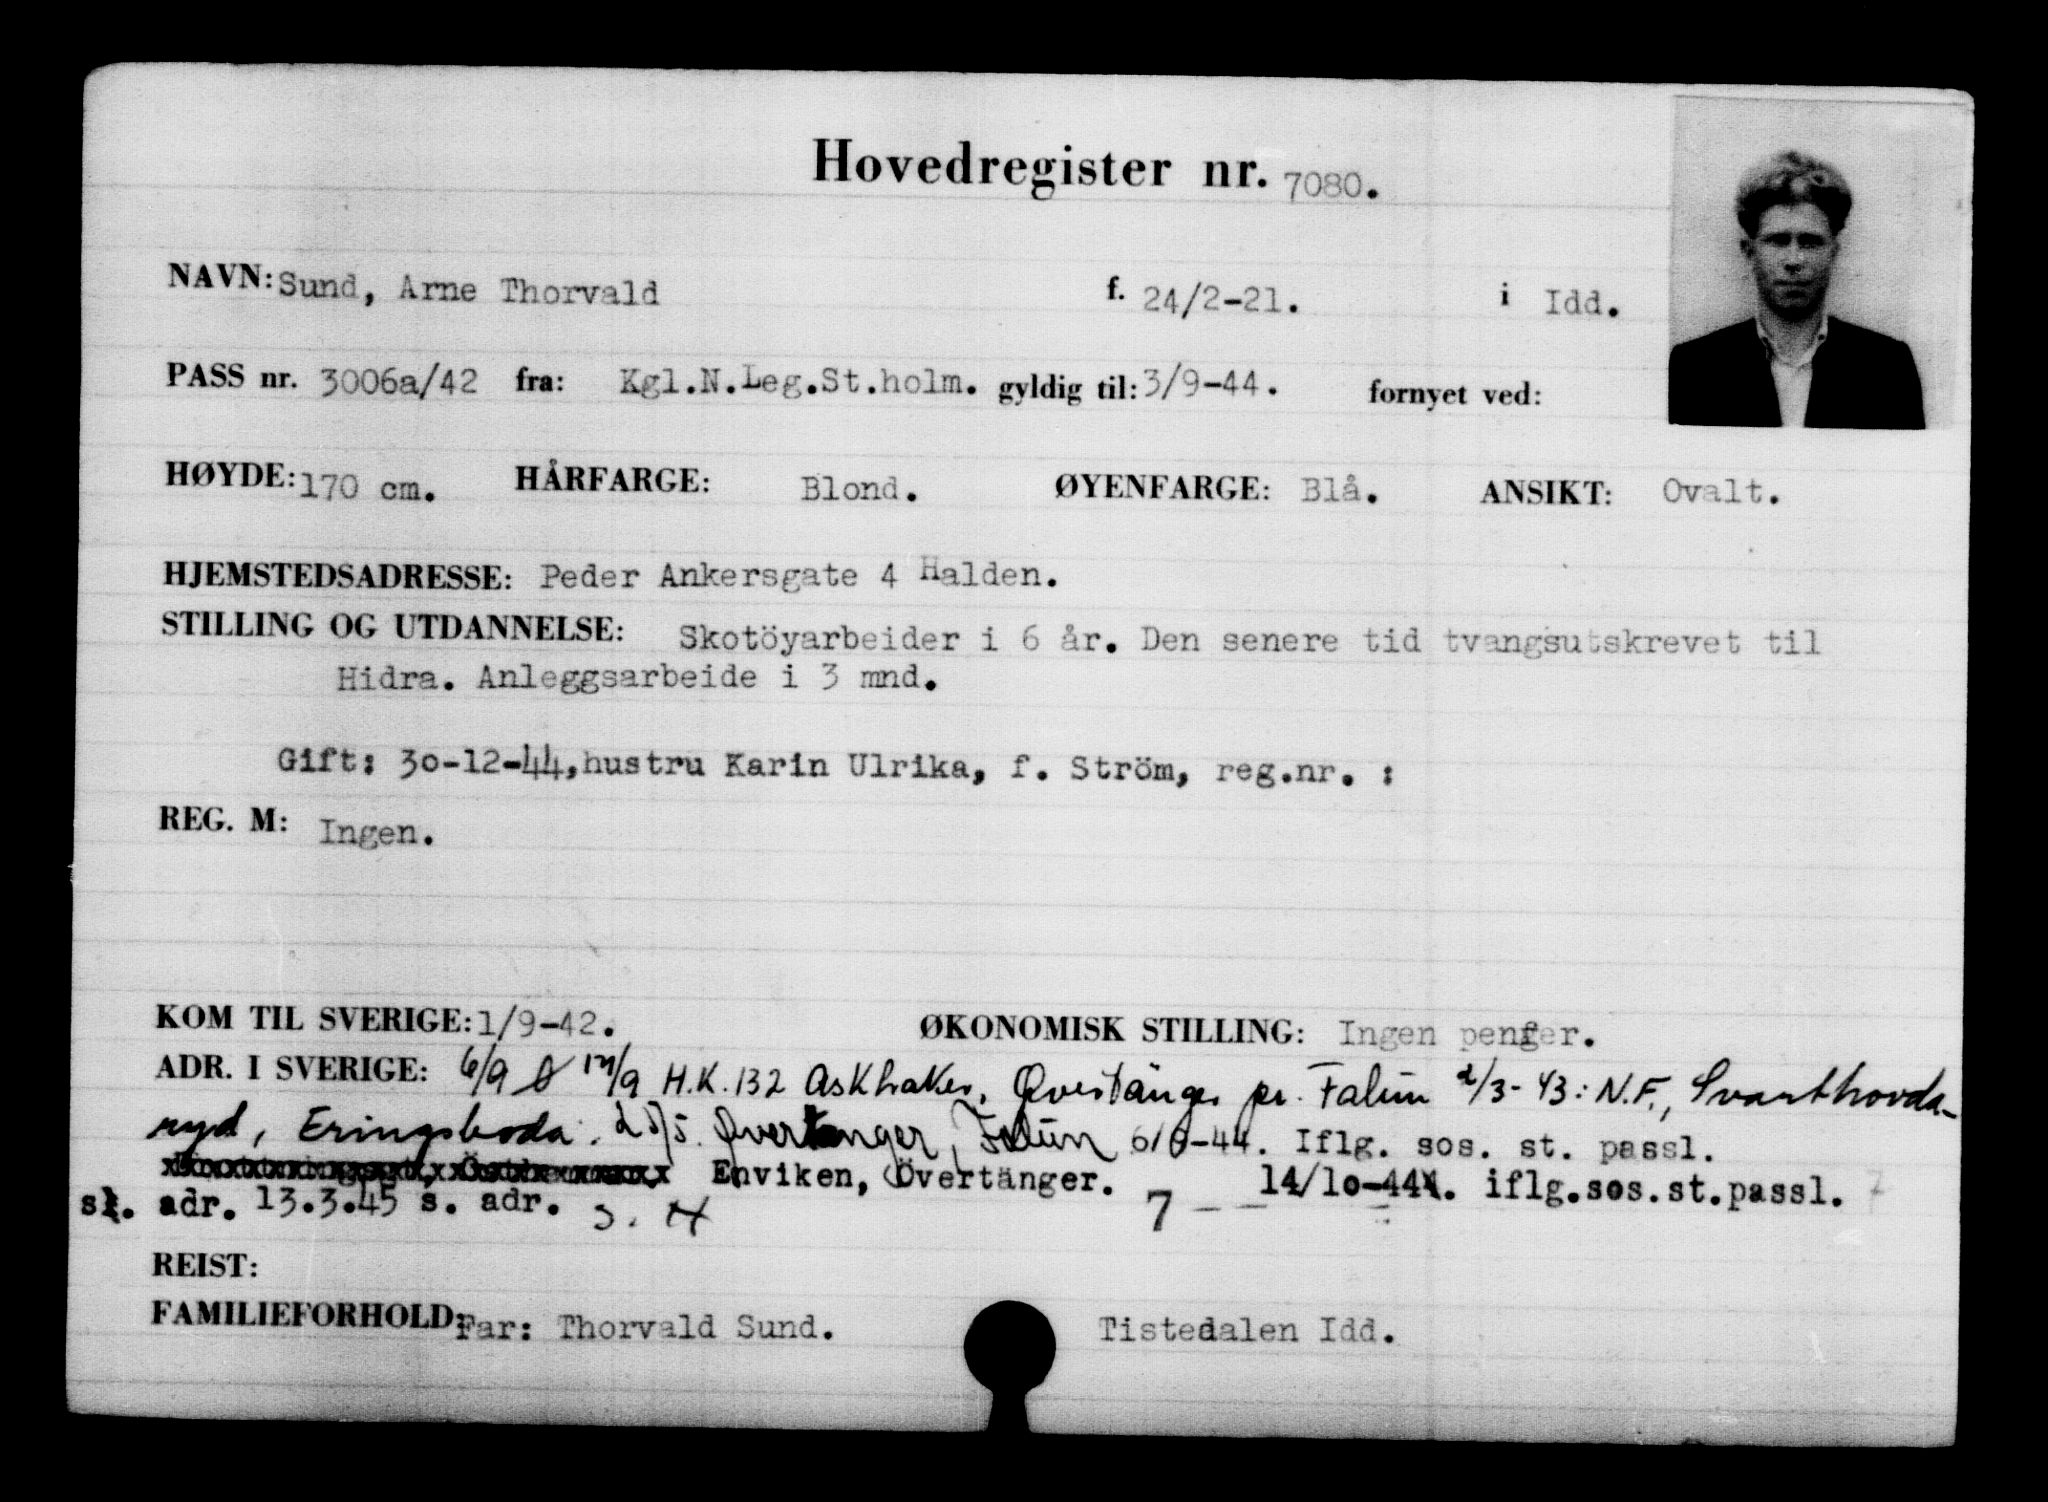 Hovedregister nr. 7080.
NAVN: Sund, Arne Thorvald f. 24/2-21. i Idd.
PASS nr. 3006a/42 fra: Kgl.N.Leg.St.holm. gyldig til: 3/9-44. fornyet ved:
HØYDE: 170 cm. HÅRFARGE: Blond. ØYENFARGE: Blå. ANSIKT: Ovalt.
HJEMSTEDSADRESSE: Peder Ankersgate 4 Halden.
STILLING OG UTDANNELSE: Skotöyarbeider i 6 år. Den senere tid tvangsutskrevet til
Hidra. Anleggsarbeide i 3 mnd.
Gift: 30-12-44, hustru Karin Ulrika, f. Ström, reg.nr. :
REG. M: Ingen.
KOM TIL SVERIGE: 1/9-42. ØKONOMISK STILLING: Ingen penger.
ADR. I SVERIGE: 6/9 H.K. 132 Askhaken, Övertänger pr. Falun 2/3-43: N.F., Svarthovda-
ryd, Eringsboda. Övertänger, Falun 6/6-44. Iflg. sos. st. passl.
Enviken, Övertänger. 14/10-44. iflg.sos.st.passl.
s. adr. 13.3.45 s. adr. 7
REIST:
FAMILIEFORHOLD: Far: Thorvald Sund. Tistedalen Idd.